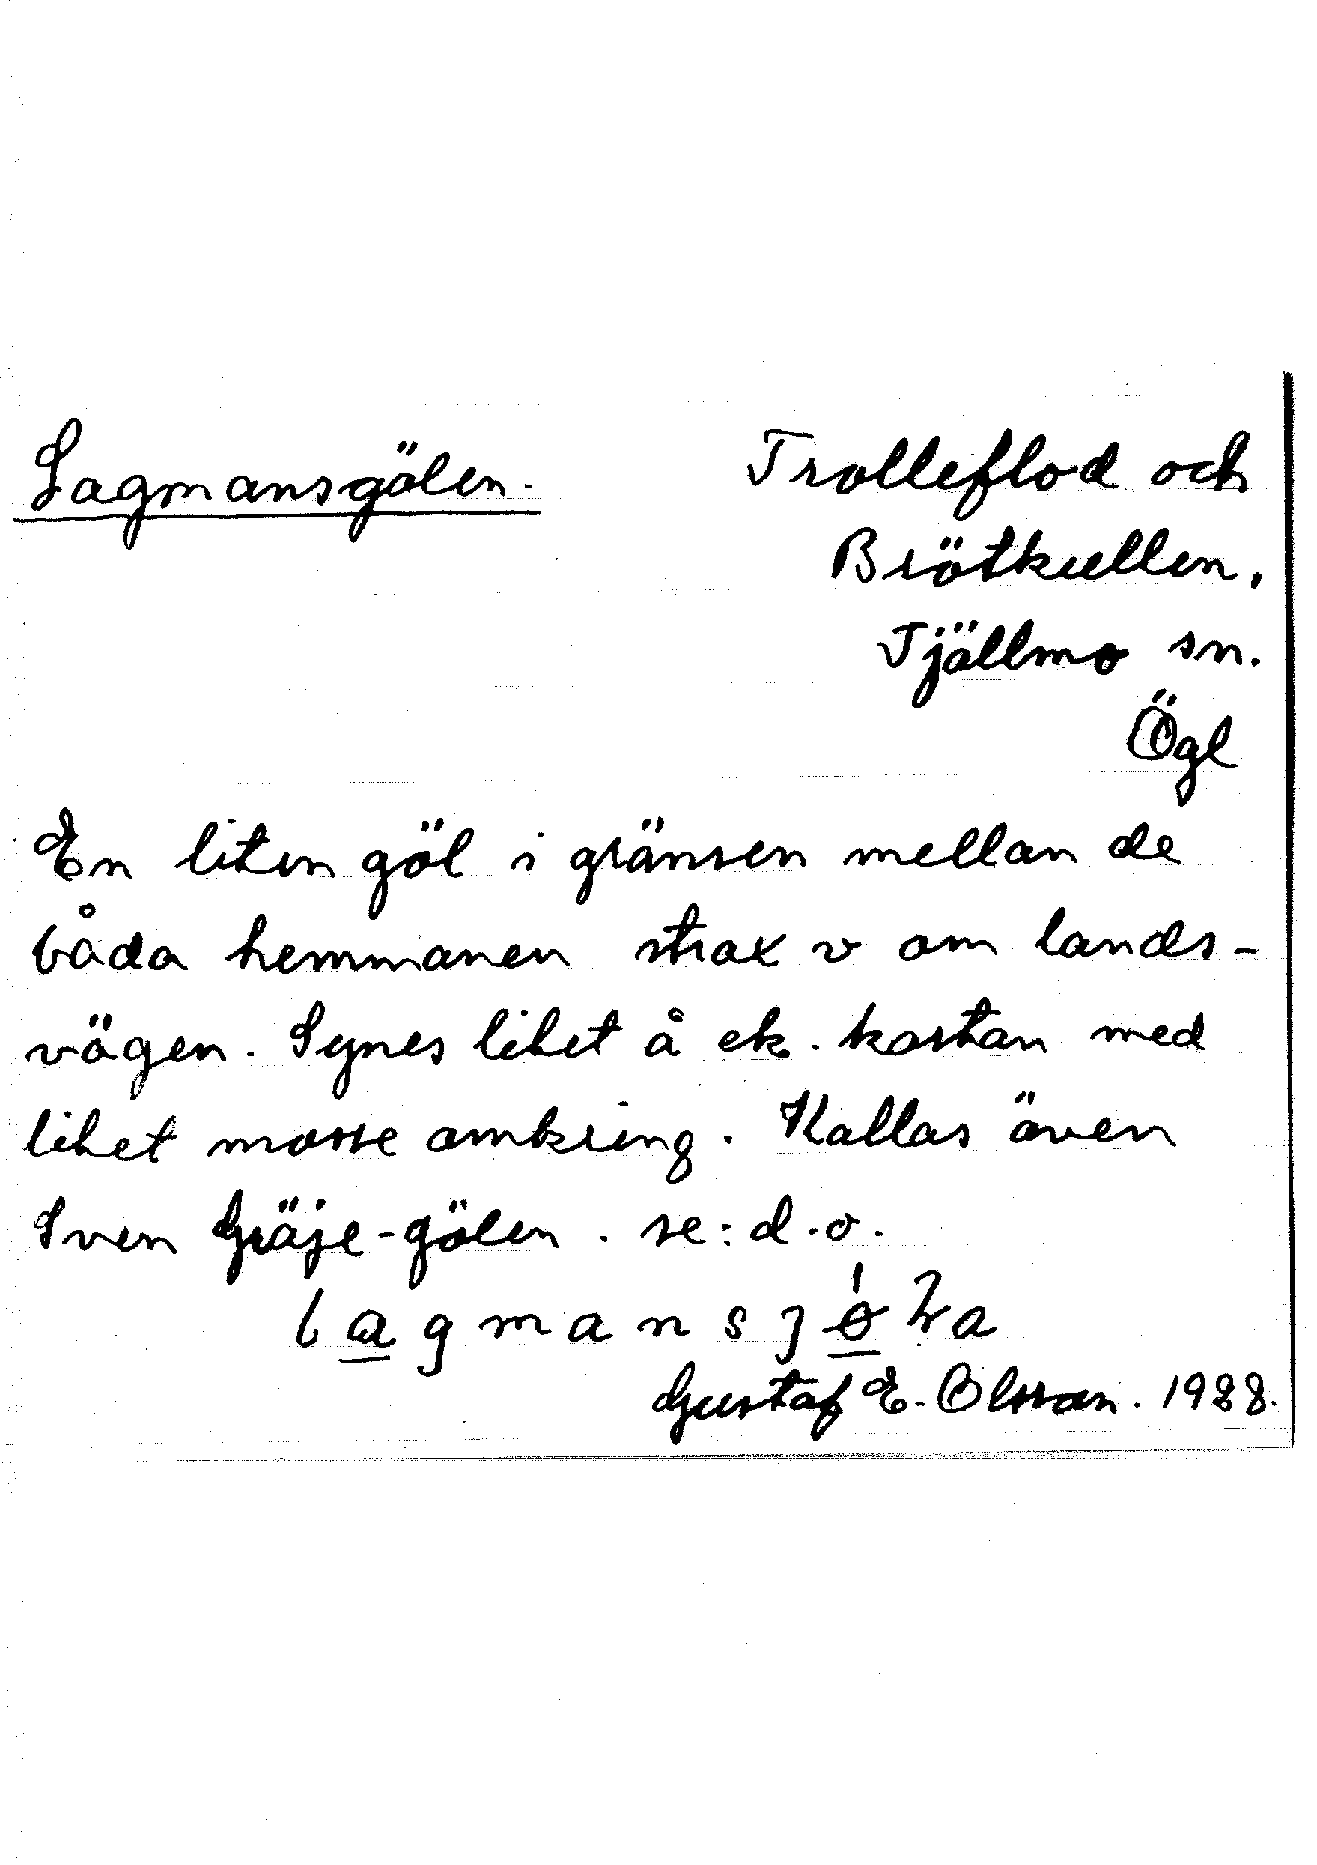 Lagmansgölen.
Trolleflod och
Brötkullen,
Tjällmo sn.
Ögl
En liten göl i gränsen mellan de
båda hemmanen strax v om lands-
vägen. Synes litet å ek. kartan med
litet mosse omkring. Kallas även
Sven Gräje-gölen. se: d.o.
Gustaf E. Olsson. 1988.